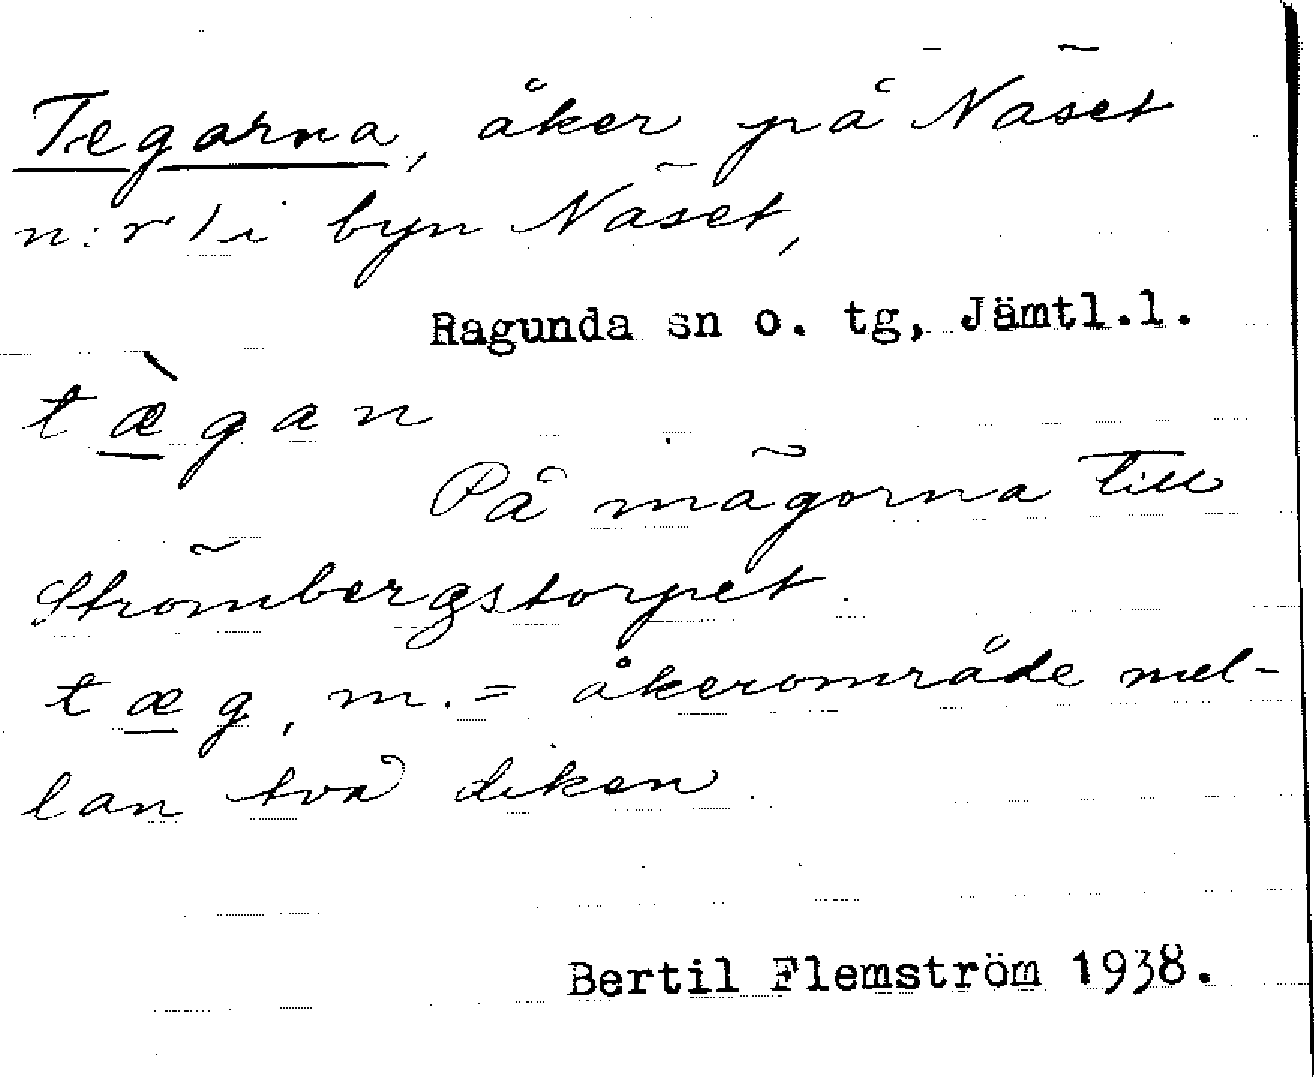 Tegarna, åker på Näset
n:r 1 i byn Näset,
Ragunda sn o. tg, Jämtl.l.
tæ̀gan
På mägorna till
Strömbergstorpet.
tæg, m. = åkerområde mel-
lan två diken.
Bertil Flemström 1938.